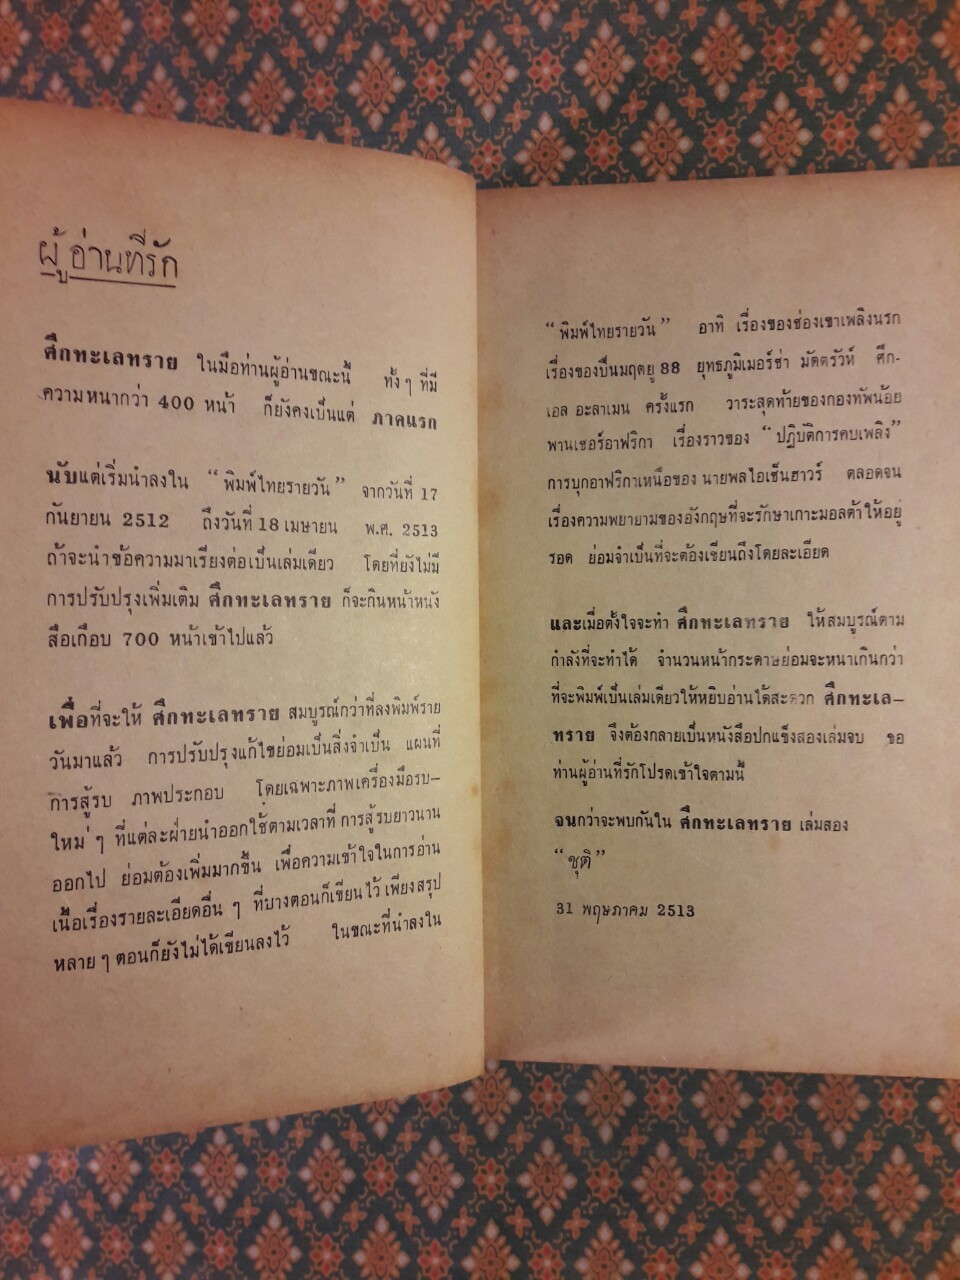 ผู้อ่านที่รัก
ศึกทะเลทราย ในมือท่านผู้อ่านขณะนี้ ทั้ง ๆ ที่มี
ความหนากว่า 400 หน้า ก็ยังคงเป็นแต่ ภาคแรก
นับแต่เริ่มนำลงใน “พิมพ์ไทยรายวัน” จากวันที่ 17
กันยายน 2512 ถึงวันที่ 18 เมษายน พ.ศ. 2513
ถ้าจะนำข้อความมาเรียงต่อเป็นเล่มเดียว โดยที่ยังไม่มี
การปรับปรุงเพิ่มเติม ศึกทะเลทราย ก็จะกินหน้าหนัง
สือเกือบ 700 หน้าเข้าไปแล้ว
เพื่อที่จะให้ ศึกทะเลทราย สมบูรณ์กว่าที่ลงพิมพ์ราย
วันมาแล้ว การปรับปรุงแก้ไขย่อมเป็นสิ่งจำเป็น แผนที่
การสู้รบ ภาพประกอบ โดยเฉพาะภาพเครื่องมือรบ–
ใหม่ ๆ ที่แต่ละฝ่ายนำออกใช้ตามเวลาที่ การสู้รบยาวนาน
ออกไป ย่อมต้องเพิ่มมากขึ้น เพื่อความเข้าใจในการอ่าน
เนื้อเรื่องรายละเอียดอื่น ๆ ที่บางตอนก็เขียนไว้ เพียงสรุป
หลาย ๆ ตอนก็ยังไม่ได้เขียนลงไว้ ในขณะที่นำลงใน
“พิมพ์ไทยรายวัน” อาทิ เรื่องของช่องเขาเพลิงนรก
เรื่องของปืนมฤตยู 88 ยุทธภูมิเมอร์ซ่า มัตตรัวห์ ศึก-
เอล อะลาเมน ครั้งแรก วาระสุดท้ายของกองทัพน้อย
พานเซอร์อาฟริกา เรื่องราวของ “ปฏิบัติการคบเพลิง”
การบุกอาฟริกาเหนือของ นายพลไอเซ็นฮาวร์ ตลอดจน
เรื่องความพยายามของอังกฤษที่จะรักษาเกาะมอลต้าให้อยู่
รอด ย่อมจำเป็นที่จะต้องเขียนถึงโดยละเอียด
และเมื่อตั้งใจจะทำ ศึกทะเลทราย ให้สมบูรณ์ตาม
กำลังที่จะทำได้ จำนวนหน้ากระดาษย่อมจะหนาเกินกว่า
ที่จะพิมพ์เป็นเล่มเดียวให้หยิบอ่านได้สะดวก ศึกทะเล–
ทราย จึงต้องกลายเป็นหนังสือปกแข็งสองเล่มจบ ขอ
ท่านผู้อ่านที่รักโปรดเข้าใจตามนี้
จนกว่าจะพบกันใน ศึกทะเลทราย เล่มสอง
“ชุติ”
31 พฤษภาคม 2513